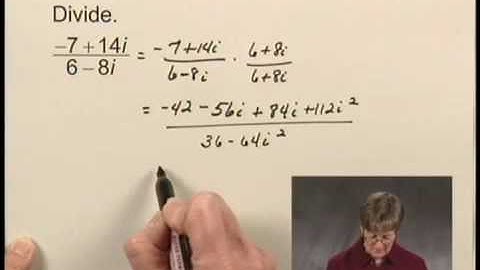 Divide.
-7 + 14i / 6 - 8i = -7+14i / 6-8i · 6+8i / 6+8i
= -42 - 56i + 84i + 112i² / 36 - 64i²